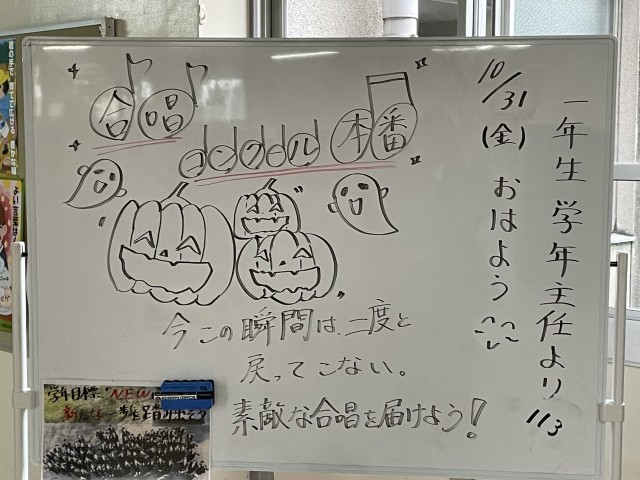 一年生 学年主任より 113
10/31(金) おはよう
合唱
コンクール 本番
今この瞬間は、二度と
戻ってこない。
素敵な合唱を届けよう!
学年目標 "NEW